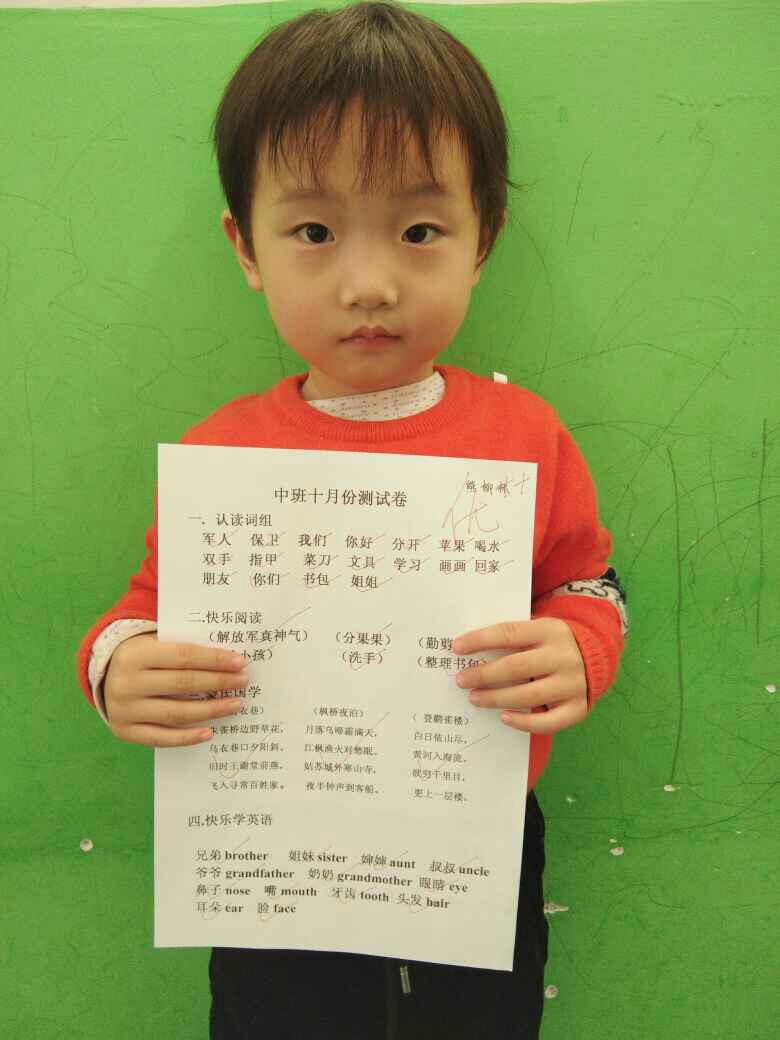 中班十月份测试卷
优
一. 认读词组
军人 保卫 我们 你好 分开 苹果 喝水
双手 指甲 菜刀 文具 学习 画画 回家
朋友 你们 书包 姐姐
二.快乐阅读
(解放军真神气) (分果果) (勤剪
小孩) (洗手) (整理书包
国学
衣巷) (枫桥夜泊) (登鹳雀楼)
朱雀桥边野草花, 月落乌啼霜满天, 白日依山尽,
乌衣巷口夕阳斜。 江枫渔火对愁眠。 黄河入海流。
旧时王谢堂前燕, 姑苏城外寒山寺, 欲穷千里目,
飞入寻常百姓家。 夜半钟声到客船。 更上一层楼。
四.快乐学英语
兄弟 brother 姐妹 sister 婶婶 aunt 叔叔 uncle
爷爷 grandfather 奶奶 grandmother 眼睛 eye
鼻子 nose 嘴 mouth 牙齿 tooth 头发 hair
耳朵 ear 脸 face